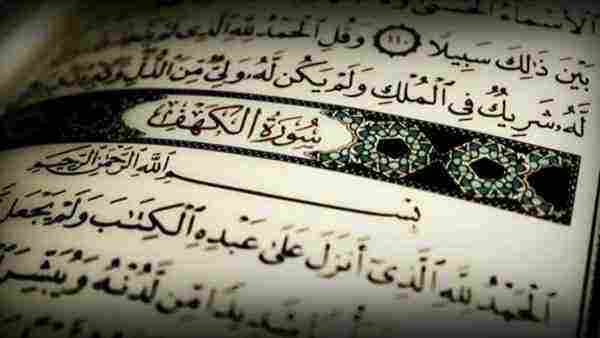 الْأَسْمَاءُ الْحُسْنَىٰ
بَيْنَ ذَٰلِكَ سَبِيلًا ١١٠ وَقُلِ الْحَمْدُ لِلَّهِ الَّذِي
لَّهُ شَرِيكٌ فِي الْمُلْكِ وَلَمْ يَكُن لَّهُ وَلِيٌّ مِّنَ الذُّلِّ
سُورَةُ الْكَهْفِ
بِسْمِ اللَّهِ الرَّحْمَٰنِ الرَّحِيمِ
الْحَمْدُ لِلَّهِ الَّذِي أَنزَلَ عَلَىٰ عَبْدِهِ الْكِتَابَ وَلَمْ يَجْعَل
شَدِيدًا مِّن لَّدُنْهُ وَيُبَشِّرَ